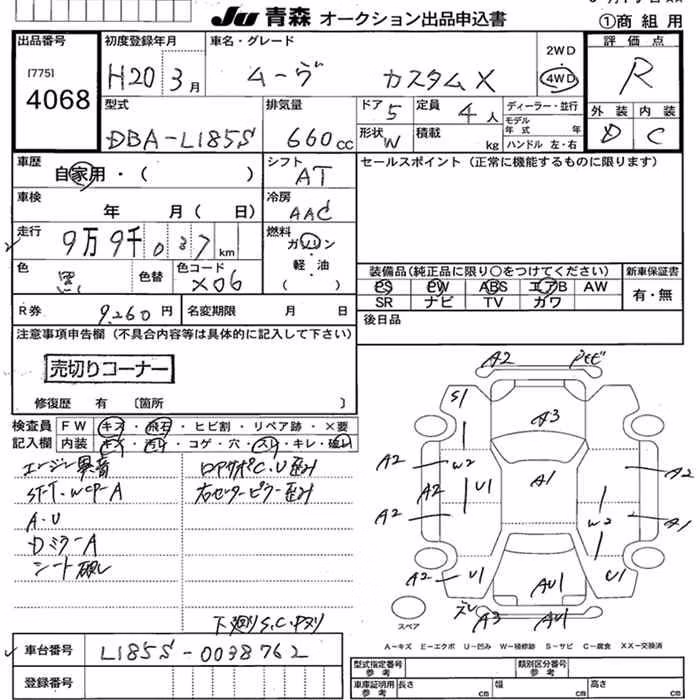 JU 青森 オークション出品申込書 ①商組用
出品番号 初度登録年月 車名・グレード 2WD 4WD 評価点
[775] 4068 H20 3月 ムーヴ カスタムX R
型式 排気量 ドア 5 定員 4人 ディーラー・並行 外装 内装
DBA-L185S 660cc 形状 W 積載 kg モデル年式 年 ハンドル 左・右 D C
車歴 自家用・( ) シフト AT セールスポイント (正常に機能するものに限ります)
車検 年 月( 日) 冷房 AAC
走行 9万9千037km 燃料 ガソリン・軽油 ( )
色 黒 色替 色コード X06
装備品(純正品に限り○をつけてください) 新車保証書
PS PW ABS エアB AW 有・無
SR ナビ TV カワ
R券 9,260円 名変期限 月 日 後日品
注意事項申告欄 (不具合内容等は具体的に記入して下さい)
売切りコーナー
修復歴 有 〔箇所 〕
検査員 FW キズ・飛石・ヒビ割・リペア跡・×要
記入欄 内装 キズ・汚れ・コゲ・穴・スレ・キレ・破レ
エンジン異音 ロアサポC.U歪み
SFT.WCP-A 右センターピラー歪み
A・U
DミラーA
シート破レ
下廻りS.C.
A2 A3 S1
A2 W2 A2 U1 A1 A2
A2 W2 A1
A2 U1 AU1 U1
A3 AU1
スペア
A-キズ E-エクボ U-凹み W-補修跡 S-サビ C-腐食 XX-交換済
車台番号 L185S-0038762
登録番号
型式指定番号 参考 類別区分番号 参考
車庫証明用 参考 長さ cm 幅 cm 高さ cm